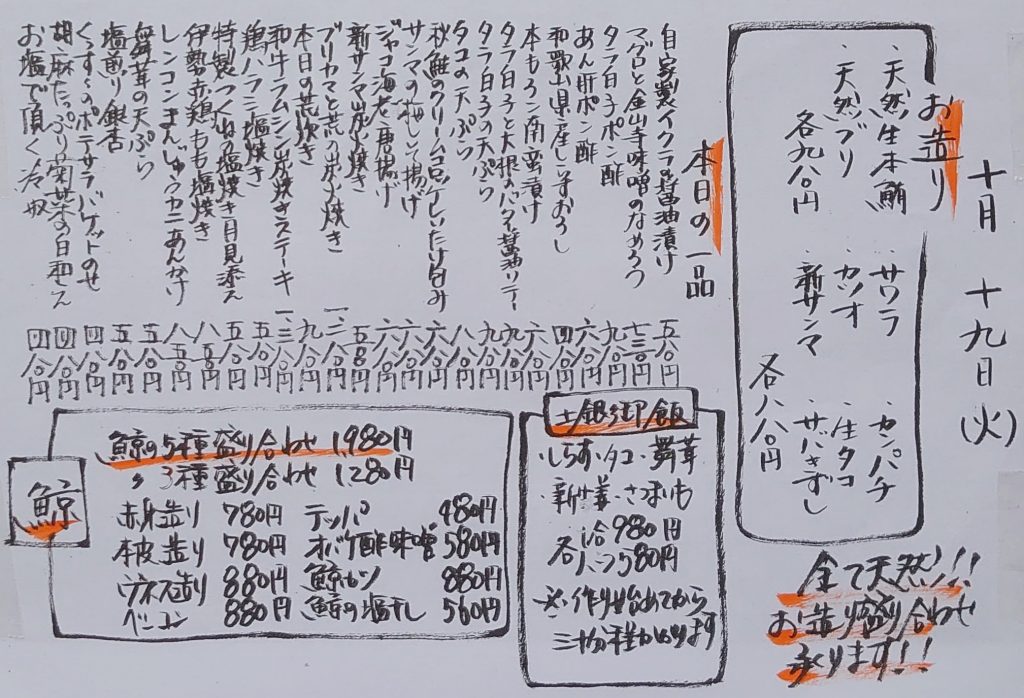 十月 十九日(火)
お造り
・天然生本鮪
・天然ブリ
各九八〇円
・サワラ
・カツオ
・新サンマ
・カンパチ
・生タコ
・サバきずし
各八八〇円
全て天然!!
お造り盛り合わせ
承ります!!
本日の一品
自家製イクラ醤油漬け 五八〇円
マグロと金山寺味噌のなめろう 七三〇円
タラ白子ポン酢 九八〇円
あん肝ポン酢 六八〇円
和歌山県産しらすおろし 四八〇円
本もろこ南蛮漬け 六八〇円
タラ白子と大根のバター醤油ソテー 九八〇円
タラ白子の天ぷら 九八〇円
タコの天ぷら 八八〇円
秋鮭のクリームコロッケしいたけ包み 六八〇円
サンマの梅しそ揚げ 六八〇円
ジャコ海老唐揚げ 六八〇円
新サンマ炭火焼き 五八〇円
ブリカマと荒の炭火焼き 一、二八〇円
本日の荒炊き 九八〇円
和牛ラムシン炭焼きステーキ 一、三八〇円
鶏ハラミ塩焼き 五八〇円
特製つくねの塩焼き月見添え 五八〇円
伊勢赤鶏もも塩焼き 八五〇円
レンコンまんじゅうカニあんかけ 八五〇円
舞茸の天ぷら 五八〇円
塩煎り銀杏 五八〇円
くんすうのポテサラバケットのせ 四八〇円
胡麻たっぷり菊菜の白和え 四八〇円
お塩で頂く冷奴 四八〇円
土鍋御飯
・しらす・タコ・舞茸
・新生姜・さつまいも
各 一合980円
ハーフ580円
※作り始めてから
三十分程かかります
鯨
鯨の5種盛り合わせ 1,980円
〃 3種盛り合わせ 1,280円
赤身造り 780円
本皮造り 780円
ウネス造り 880円
ベーコン 880円
テッパ 980円
オバケ酢味噌 580円
鯨カツ 880円
鯨の塩干し 560円